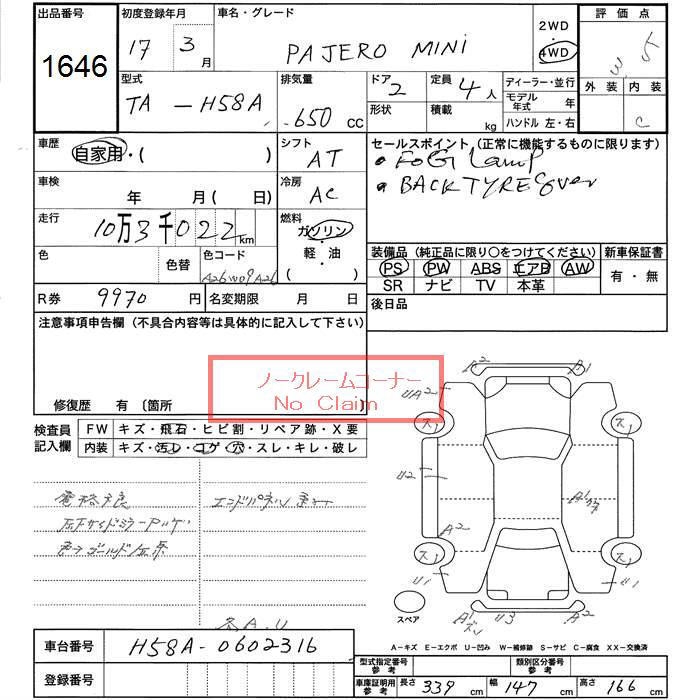 出品番号
1646
初度登録年月
17 3月
車名・グレード
PAJERO MINI
2WD
・
4WD
評価点
5
外装 内装
C
型式
TA-H58A
排気量
650 cc
ドア
2
定員
4人
形状
積載 kg
ディーラー・並行
モデル年式 年
ハンドル 左・右
車歴
自家用・( )
シフト
AT
セールスポイント (正常に機能するものに限ります)
・FOG Lamp
・BACK TYRE Cover
車検
年 月( 日)
冷房
AC
走行
10万3千022km
燃料
ガソリン・
軽・油
( )
色
色替
色コード
A26W09A26
装備品 (純正品に限り〇をつけてください)
PS PW ABS エアB AW
SR ナビ TV 本革
新車保証書
有・無
R券
9970円
名変期限 月 日
後日品
注意事項申告欄 (不具合内容等は具体的に記入して下さい)
ノークレームコーナー
No Claim
修復歴 有 〔箇所 〕
検査員記入欄
FW キズ・飛石・ヒビ割・リペア跡・X要
内装 キズ・汚レ・コゲ・穴・スレ・キレ・破レ
電格不良
エンドパネル
左下サイドミラー
A2
A1
UA2
U2
A2
U1
U1
A1
U3
A2
スペア
A-キズ E-エクボ U-凹み W-補修跡 S-サビ C-腐食 XX-交換済
車台番号
H58A-0602316
登録番号
型式指定番号 参考
類別区分番号 参考
車庫証明用 参考
長さ 339 cm
幅 147 cm
高さ 166 cm